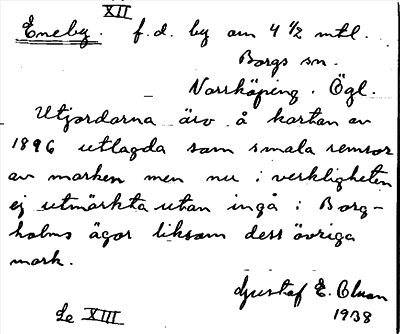 XII
Eneby. f.d. by om 4 1/2 mtl.
Borgs sn.
Norrköping. Ögl.
Utjordarna äro å kartan av
1896 utlagda som smala remsor
av marken men nu i verkligheten
ej utmärkta utan ingå i Borg-
holms ägor liksom dess övriga
mark.
Gustaf E. Olson
1938
Se XIII